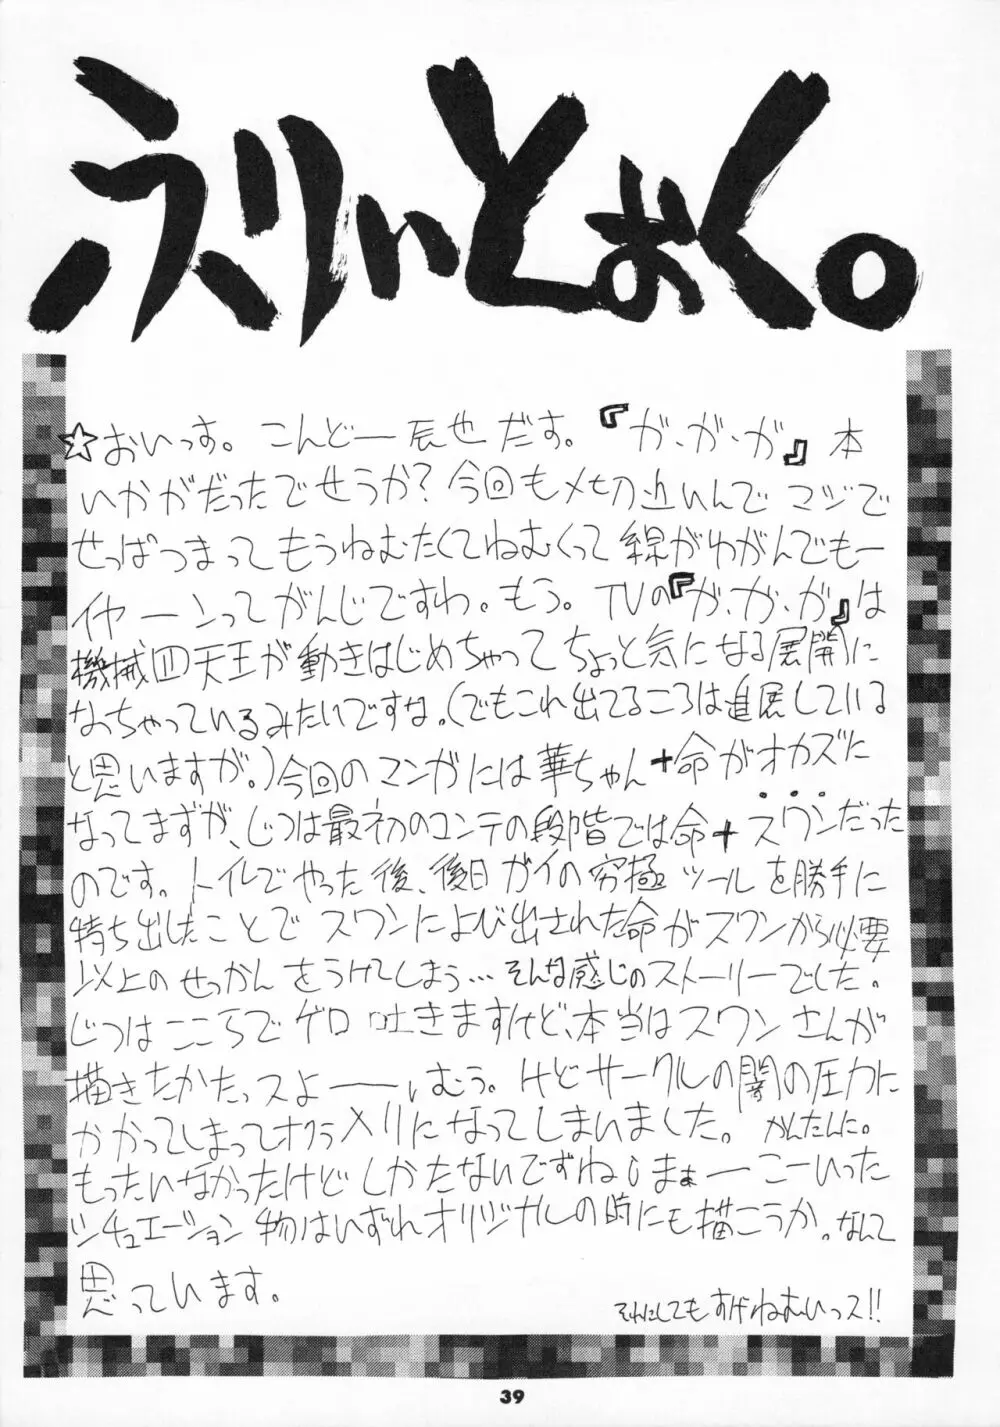 えりいとおく。
☆おいっす。こんどー辰也だす。『ガ・ガ・ガ』本
いかがだったでせうか?今回もメ切近いんでマジで
せっぱつまってもうねむたくてねむくって線がわがんでも一
イヤーンってがんじですわ。もう。TVの『ガ・ガ・ガ』は
機械四天王が動きはじめちゃってちょっと気になる展開に
なっちゃっているみたいですな。(でもこれ出てるころは進展している
と思いますが。)今回のマンガには華ちゃん+命がオカズに
なってますが、じつは最初のコンテの段階では命+スワンだった
のです。トイレでやった後、後日ガイの究極ツールを勝手に
持ち出したことでスワンによび出された命がスワンから必要
以上のせっかんをうけてしまう…そんな感じのストーリーでした。
じつはこころでゲロ吐きますけど、本当はスワンさんが
描きたかたっスよーーいむう。けどサークルの闇の圧力に
かかってしまってオクラ入りになってしまいました。かんたんに。
もったいなかったけどしかたないですねしまぁーこーいった
シチュエーション物はいずれオリジナルの時にも描こうか。なんて
思っています。
それにしてもすげねむいっス!!
39